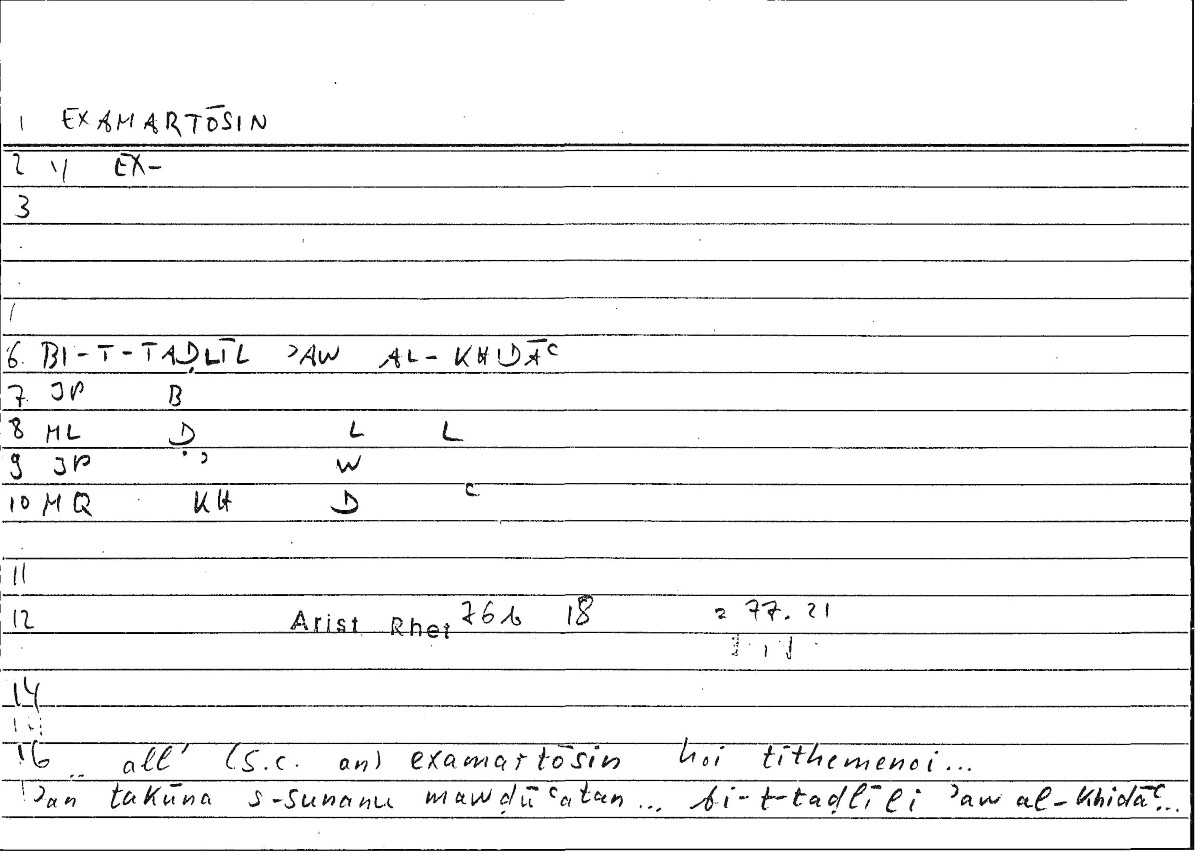 1 EXAMARTŌSIN
2 1/ EX-
3
6 BI-T-TAḌLĪL ʾAW AL-KHIDĀʿ
7 JP B
8 ML Ḍ L L
9 JP ʾ W
10 MQ KH D ʿ
11
12 Arist Rhet 76b 18 = 77.21
14
16 .. all' (s.c. an) examartōsin hoi tithemenoi...
ʾan takūna s-sunanu mawḍūʿatan... bi-t-taḍlīli ʾaw al-khidāʿ...